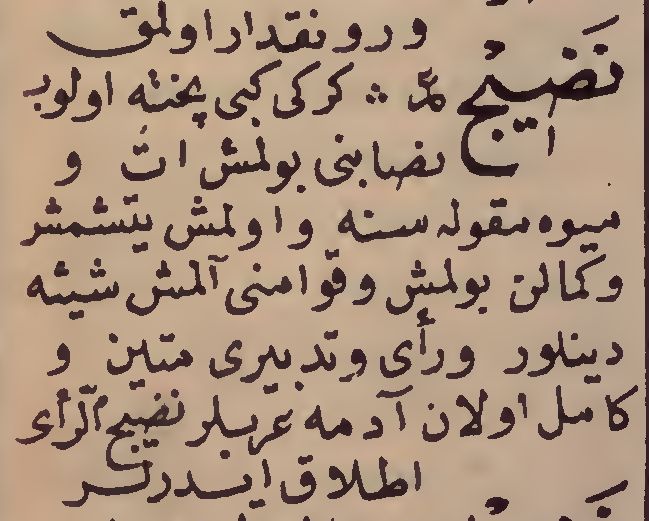 ورونقدار اولمق
نضيج عم ؞ كركى كبى پخته اولوب
نضابنى بولمش ات و
ميوه مقوله سنه و اولمش يتشمشر
و كمالن بولمش و قوامنى آلمش شيئه
دينلور و رأى و تدبيرى متين و
كامل اولان آدمه عربلر نضيج الرأى
اطلاق ايدرلر